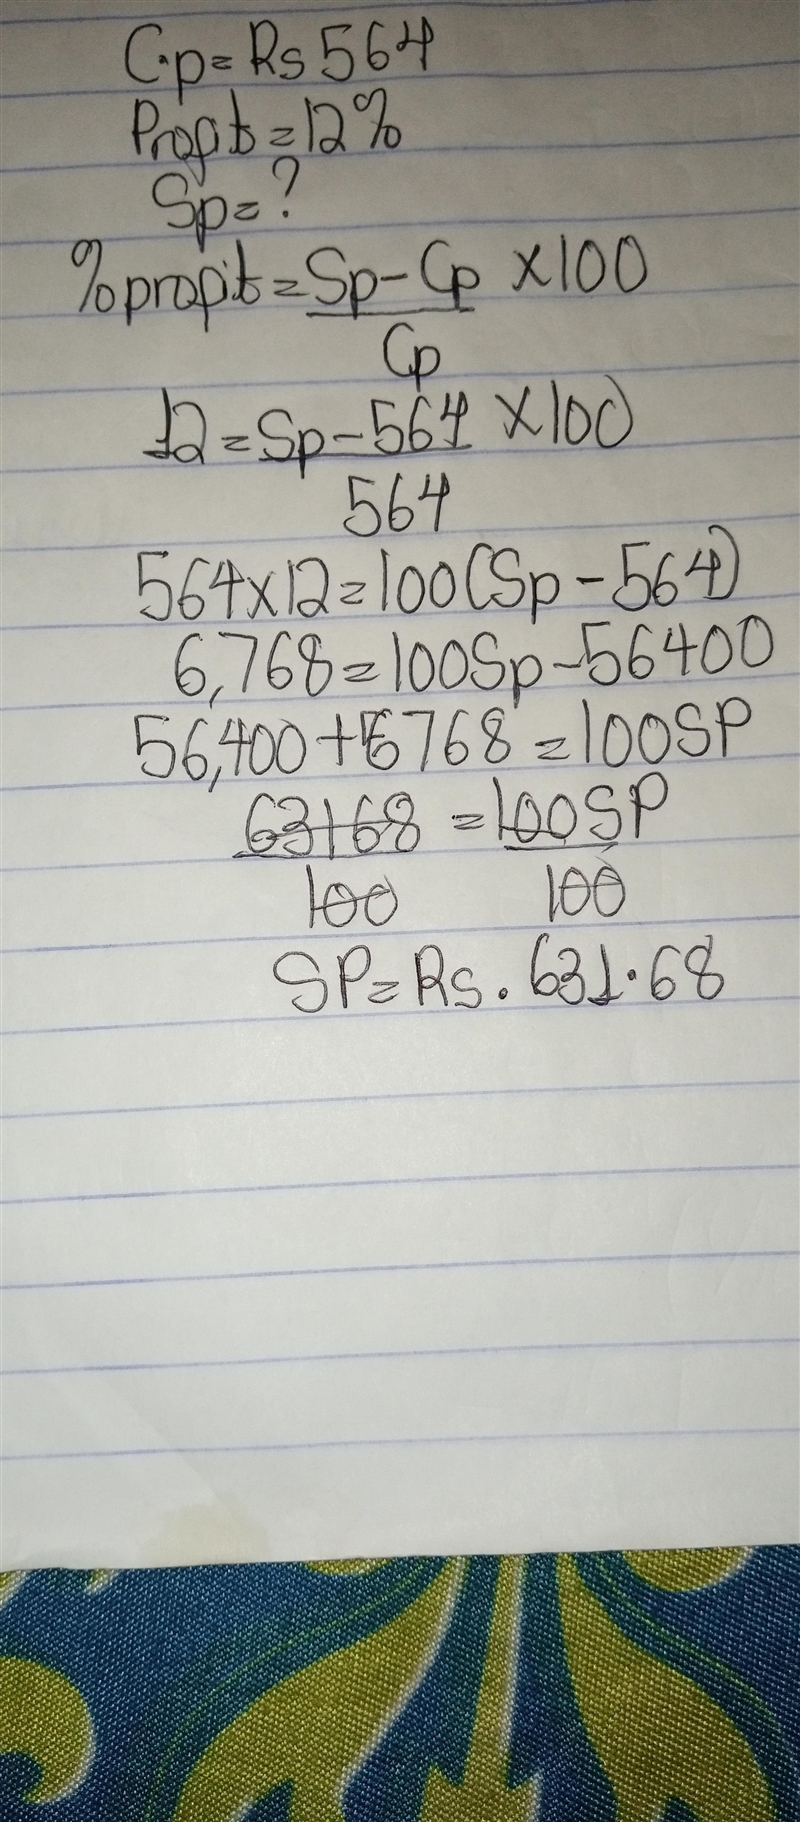 C.p = Rs 564
Profit = 12%
Sp = ?
% profit = Sp - Cp × 100
Cp
12 = Sp - 564 × 100
564
564 × 12 = 100(Sp - 564)
6,768 = 100Sp - 56400
56,400 + 6768 = 100SP
63168 = 100SP
100 100
SP = Rs. 631.68